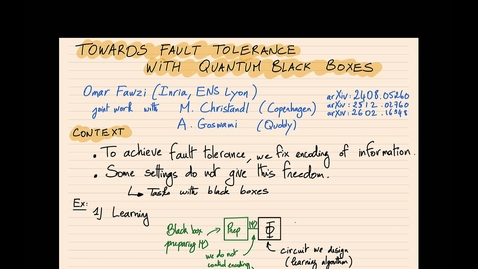 TOWARDS FAULT TOLERANCE
WITH QUANTUM BLACK BOXES
Omar Fawzi (Inria, ENS Lyon)
joint work with M. Christandl (Copenhagen)
A. Goswami (Quobly)
arXiv: 2408.05260
arXiv: 2512.02760
arXiv: 2602.16348
CONTEXT
• To achieve fault tolerance, we fix encoding of information.
• Some settings do not give this freedom.
↳ Tasks with black boxes
Ex:
1) Learning
Black box
preparing |ψ⟩
Prep
|ψ⟩
Φ
we do not
control encoding
circuit we design
(learning algorithm)